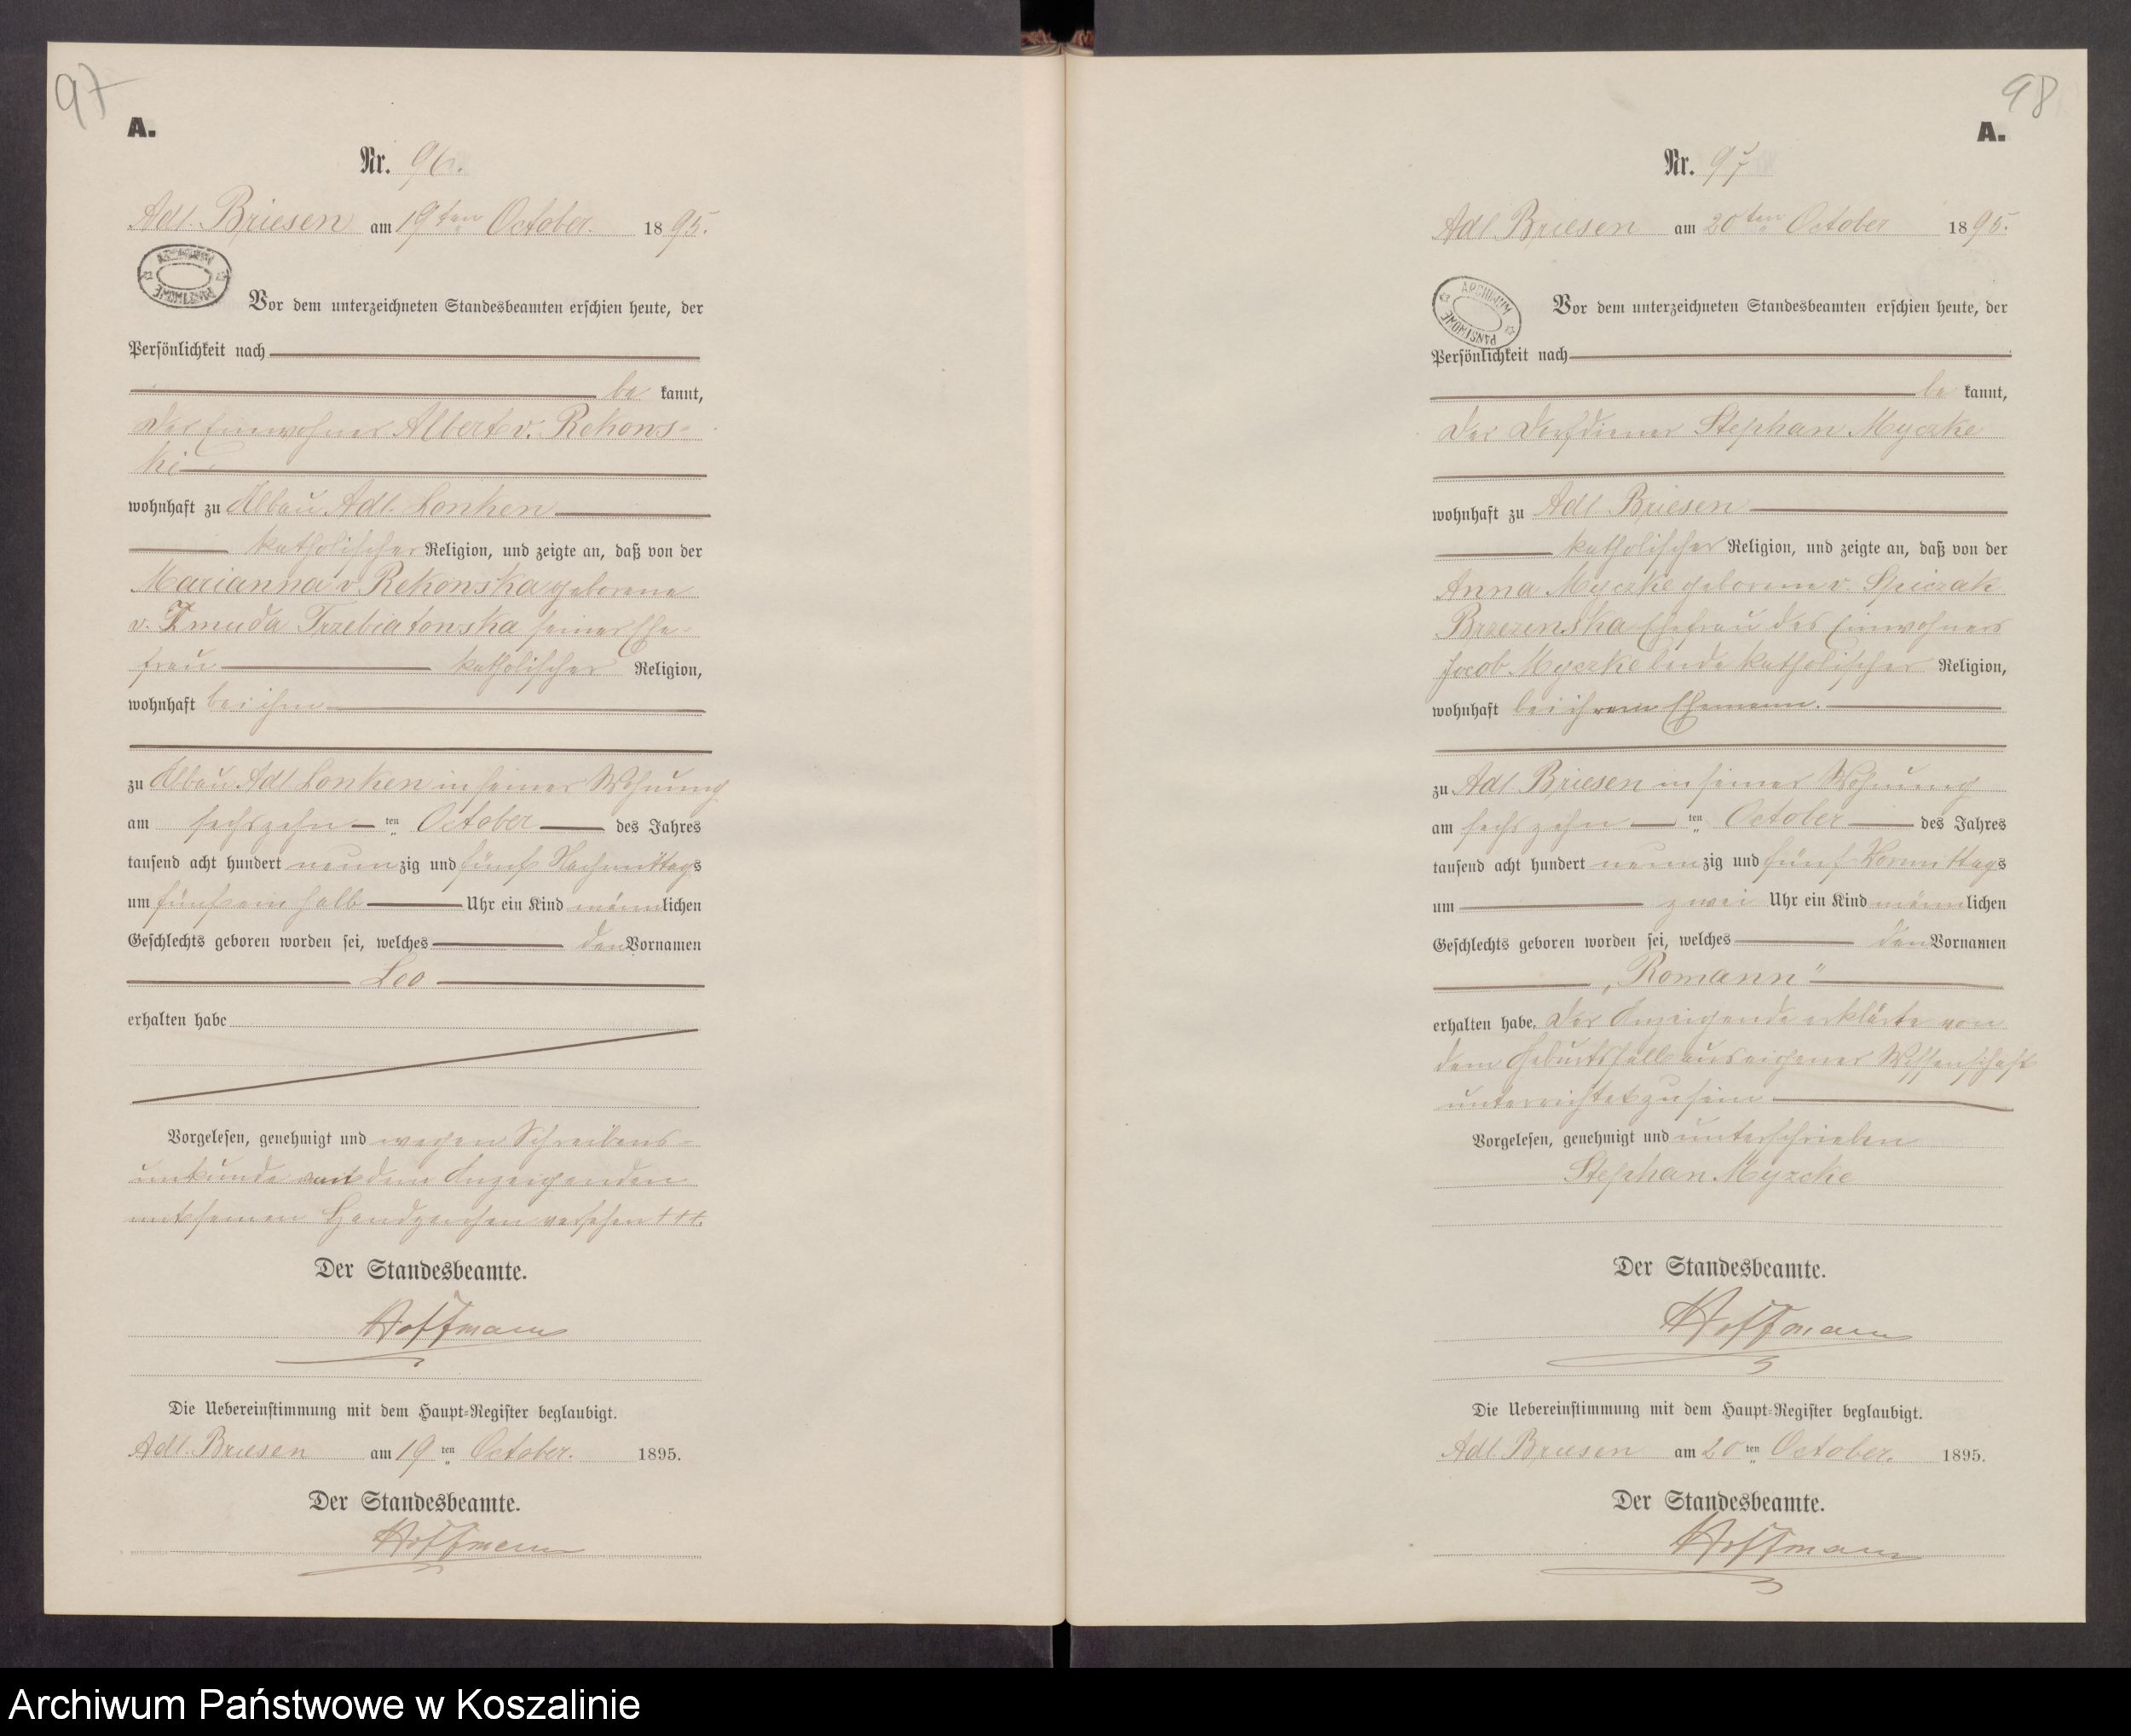 97
A.
Nr. 96.
Adl. Briesen am 19ten October. 1895.
ARCHIWUM PAŃSTWOWE
Vor dem unterzeichneten Standesbeamten erschien heute, der
Persönlichkeit nach
be kannt,
der Einwohner Albert v. Rekows-
ki
wohnhaft zu Abbau Adl. Lonken
katholischer Religion, und zeigte an, daß von der
Marianna v. Rekowska geborene
v. Zmuda Trzebiatowska seiner Ehe-
frau katholischer Religion,
wohnhaft bei ihm
zu Abbau Adl. Lonken in seiner Wohnung
am sechszehn ten October des Jahres
tausend acht hundert neunzig und fünf Nachmittags
um fünf ein halb Uhr ein Kind männlichen
Geschlechts geboren worden sei, welches den Vornamen
Leo
erhalten habe
Vorgelesen, genehmigt und wegen Schreibens-
unkunde von dem Anzeigenden
mit seinem Handzeichen versehen +++.
Der Standesbeamte.
Hoffmann
Die Uebereinstimmung mit dem Haupt-Register beglaubigt.
Adl. Briesen am 19 ten October. 1895.
Der Standesbeamte.
Hoffmann
98
A.
Nr. 97
Adl. Briesen am 20ten October 1895.
ARCHIWUM PAŃSTWOWE
Vor dem unterzeichneten Standesbeamten erschien heute, der
Persönlichkeit nach
be kannt,
der Stephan Myczke
wohnhaft zu Adl. Briesen
katholischer Religion, und zeigte an, daß von der
Anna Myczke geborene v. Spiczak
Brzezenska Ehefrau des Einwohners
Jacob Myczke beide katholischer Religion,
wohnhaft bei ihrem Ehemann.
zu Adl. Briesen in seiner Wohnung
am sechszehn ten October des Jahres
tausend acht hundert neunzig und fünf Vormittags
um zwei Uhr ein Kind männlichen
Geschlechts geboren worden sei, welches den Vornamen
„Romann"
erhalten habe. Der Anzeigende erklärte von
dem Geburtsfall aus eigener Wissenschaft
unterrichtet zu sein
Vorgelesen, genehmigt und unterschrieben
Stephan Myzcke
Der Standesbeamte.
Hoffmann
Die Uebereinstimmung mit dem Haupt-Register beglaubigt.
Adl. Briesen am 20 ten October. 1895.
Der Standesbeamte.
Hoffmann
Archiwum Państwowe w Koszalinie